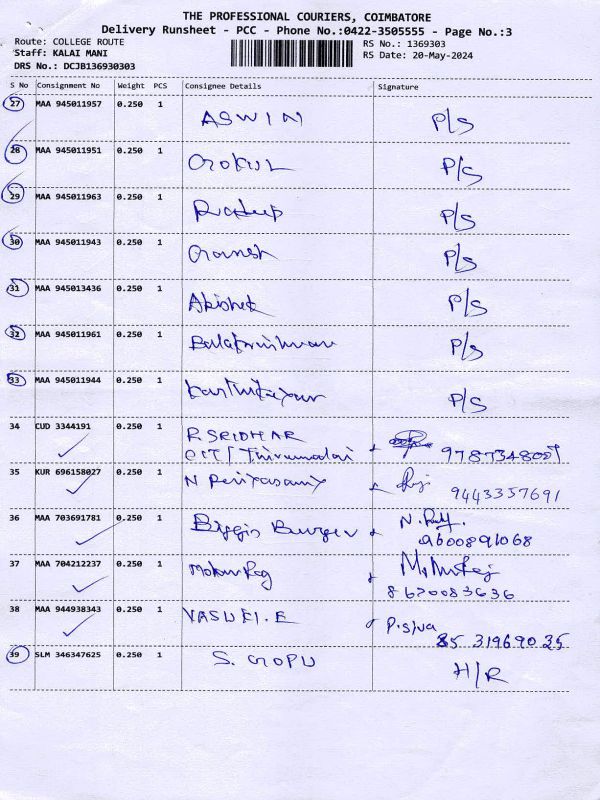 THE PROFESSIONAL COURIERS, COIMBATORE
Delivery Runsheet - PCC - Phone No.:0422-3505555 - Page No.:3
Route: COLLEGE ROUTE
Staff: KALAI MANI
DRS No.: DCJB136930303
RS No.: 1369303
RS Date: 20-May-2024
S No Consignment No Weight PCS Consignee Details Signature
27 MAA 945011957 0.250 1 ASWIN P/S
28 MAA 945011951 0.250 1 Gokul P/S
29 MAA 945011963 0.250 1 Pradeep P/S
30 MAA 945011943 0.250 1 Ganesh P/S
31 MAA 945013436 0.250 1 Abishek P/S
32 MAA 945011961 0.250 1 P/S
33 MAA 945011944 0.250 1 P/S
34 CUD 3344191 0.250 1 R. SRIDHAR
CIT/ Thirumalai
35 KUR 696158027 0.250 1 N Periyasamy
9443357691
36 MAA 703691781 0.250 1 Biggis Burger
9600891068
37 MAA 704212237 0.250 1 Mohan Rag
8620083636
38 MAA 944938343 0.250 1 VASUKI.E P. Siva
85 31969035
39 SLM 346347625 0.250 1 S. GOPU H/R